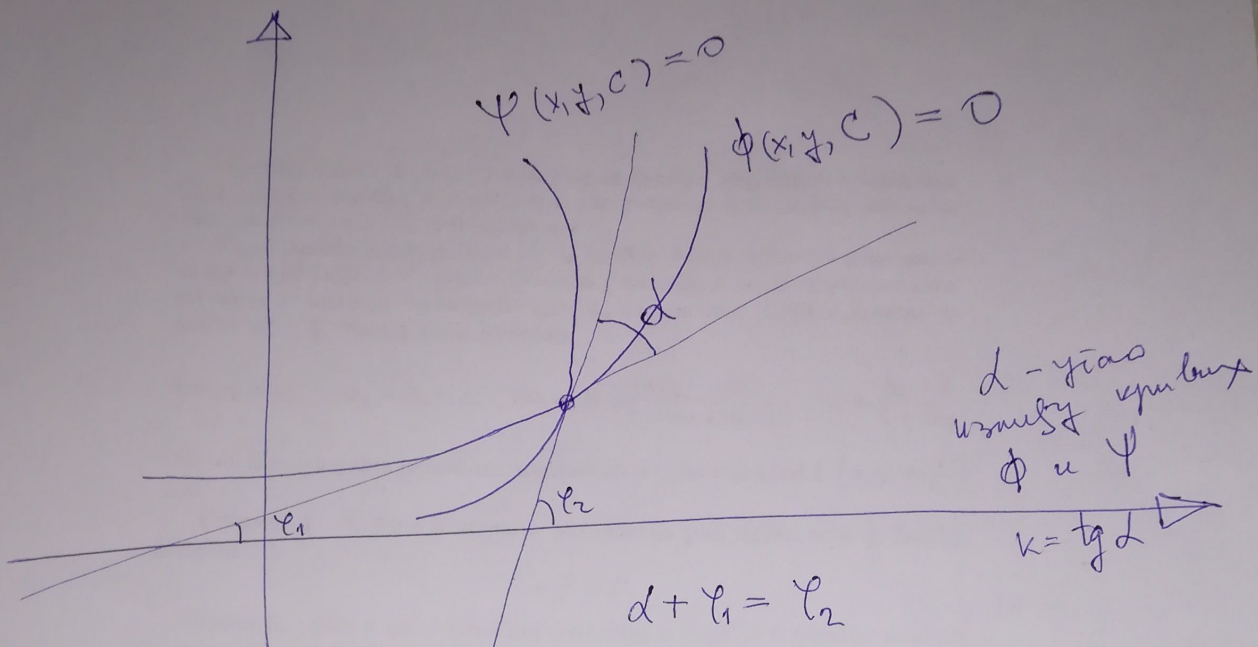 Ψ(x,y,C)=0
ϕ(x,y,C)=0
α
α - угао
између кривих
ϕ и Ψ
φ₁
φ₂
k=tg α
α+φ₁=φ₂